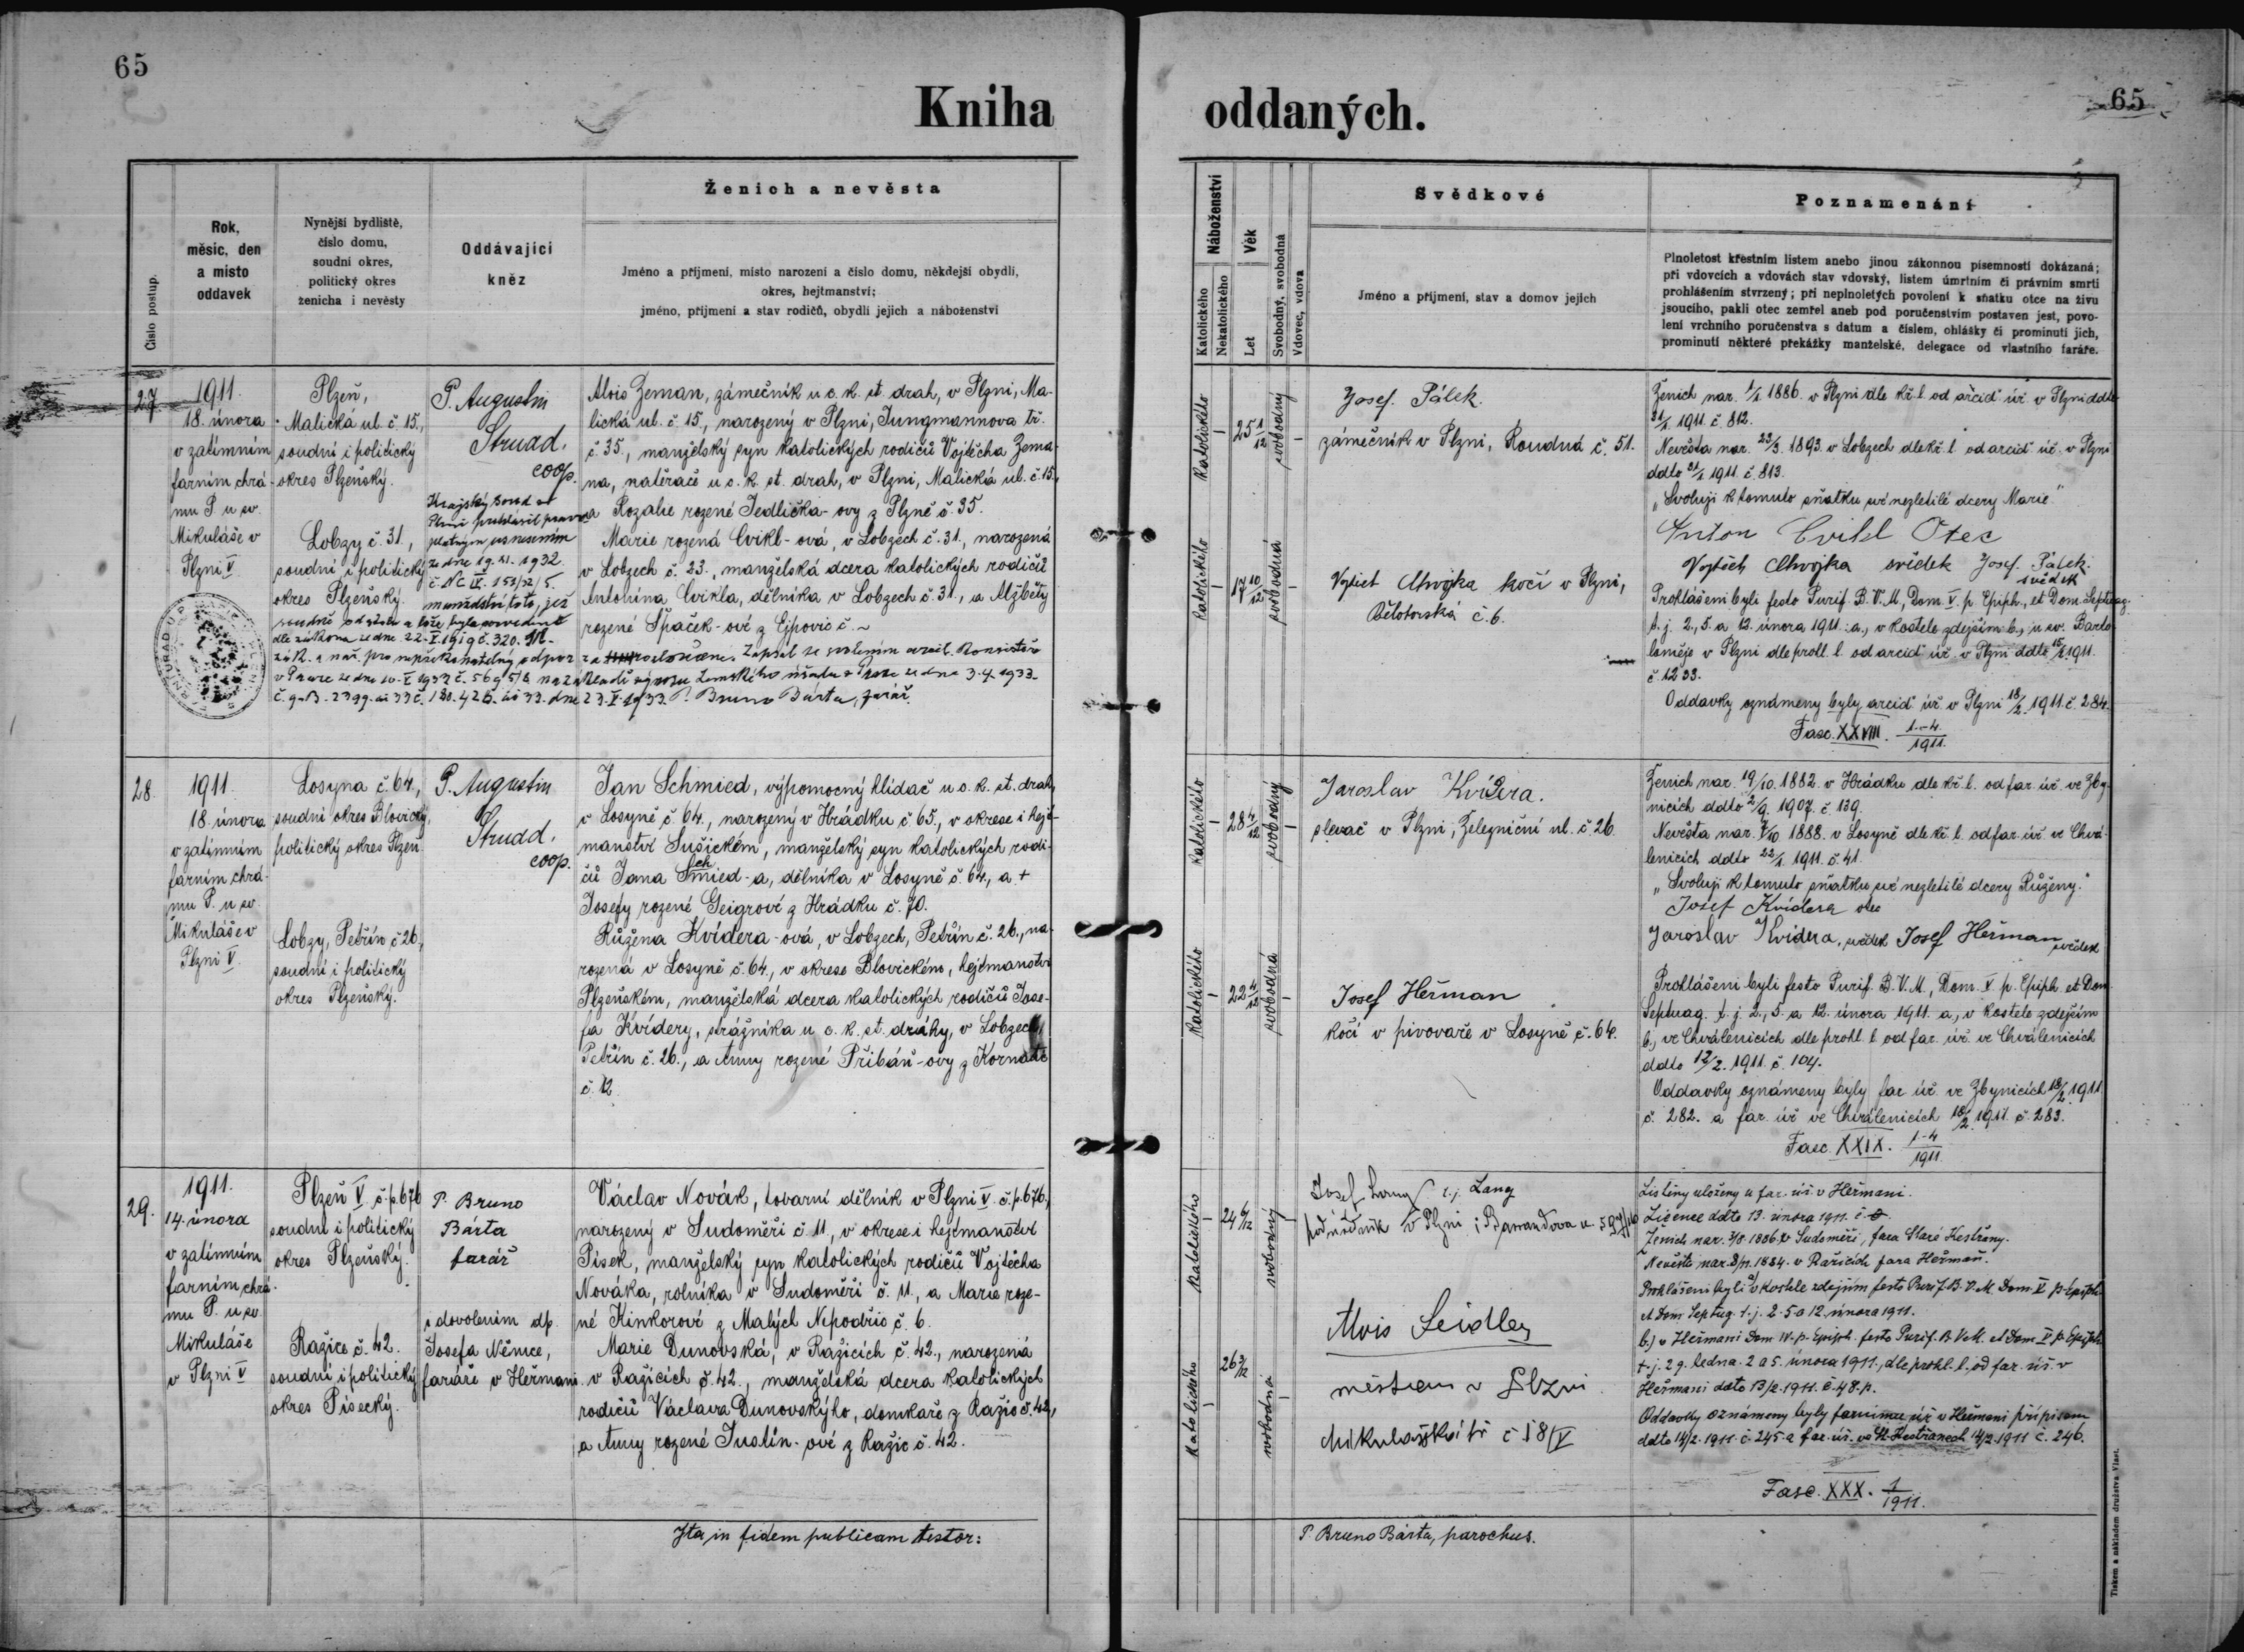 65
Kniha
Číslo postup.
Rok,
měsíc, den
a místo
oddavek
Nynější bydliště,
číslo domu,
soudní okres,
politický okres
ženicha i nevěsty
Oddávající
kněz
Ženich a nevěsta
Jméno a příjmení, místo narození a číslo domu, někdejší obydlí,
okres, hejtmanství;
jméno, příjmení a stav rodičů, obydlí jejich a náboženství
27
1911.
18. února
v zatímním
farním chrá-
mu P. u sv.
Mikuláše v
Plzni V.
Plzeň,
Malická ul. č. 15.,
soudní i politický
okres Plzeňský.
Lobzy č. 31.,
soudní i politický
okres Plzeňský.
P. Augustin
Strnad.
coop.
Krajský soud v
Plzni prohlásil pravo-
platným usnesením
ze dne 19. XI. 1932.
č. Nc IV. 153/32/5.
manželství toto, jež
soudně od stolu a lože bylo rozvedeno
dle zákona ze dne 22. V. 1919 č. 320.
zák. a nař. pro nepřekonatelný odpor za rozloučené. Zapsal se svolením arcib. Konsistoře
v Praze ze dne 20. V. 1933 č. 5695/3 na základě výnosu Zemského úřadu v Praze ze dne 3. 4. 1933
23. V. 1933. P. Bruno Bárta, farář.
Alois Zeman, zámečník u c. k. st. drah, v Plzni, Ma-
lická ul. č. 15., narozený v Plzni, Jungmannova tř.
č. 35., manželský syn katolických rodičů Vojtěcha Zema-
na, natěrače u c. k. st. drah, v Plzni, Malická ul. č. 15.,
a Rozalie rozené Jedlička-ovy z Plzně č. 35.
Marie rozená Cvikl-ová, v Lobzech č. 31., narozená
v Lobzech č. 23., manželská dcera katolických rodičů
Antonína Cvikla, dělníka v Lobzech č. 31., a Alžběty
rozené Špaček-ové z Ejpovic č. ~
28.
1911.
18. února
v zatímním
farním chrá-
mu P. u sv.
Mikuláše v
Plzni V.
Losyna č. 64.,
soudní okres Blovický,
politický okres Plzeň
Lobzy, Petřín č. 26.,
soudní i politický
okres Plzeňský.
P. Augustin
Strnad.
coop.
Jan Schmied, výpomocný hlídač u c. k. st. drah,
v Losyně č. 64., narozený v Hrádku č. 65., v okrese i hejt-
manství Sušickém, manželský syn katolických rodi-
čů Jana Schmied-a, dělníka v Losyně č. 64., a +
Josefy rozené Geigrové z Hrádku č. 70.
Růžena Kvídera-ová, v Lobzech, Petřín č. 26., na-
rozená v Losyně č. 64., v okrese Blovickém, hejtmanství
Plzeňském, manželská dcera katolických rodičů Jose-
fa Kvídery, strážníka u c. k. st. dráhy, v Lobzech,
Petřín č. 26., a Anny rozené Přibáň-ovy z Kornatic
č. 12.
29.
1911.
14. února
v zatímním
farním chrá-
mu P. u sv.
Mikuláše
v Plzni V
Plzeň V. č. p. 676
soudní i politický
okres Plzeňský.
Ražice č. 42.
soudní i politický
okres Písecký.
P. Bruno
Bárta
farář
s dovolením dp.
Josefa Němce,
faráře v Heřmani.
Václav Novák, tovární dělník v Plzni V. č. p. 676.,
narozený v Sudoměři č. 11., v okrese i hejtmanství
Písek, manželský syn katolických rodičů Vojtěcha
Nováka, rolníka v Sudoměři č. 11., a Marie roze-
né Kinkorové z Malých Nepodřic č. 6.
Marie Dunovská, v Ražicích č. 42., narozená
v Ražicích č. 42., manželská dcera katolických
rodičů Václava Dunovského, domkaře z Ražic č. 42,
a Anny rozené Justin-ové z Ražic č. 42.
Ita in fidem publicam testor:
oddaných.
65
Náboženství
Katolického
Nekatolického
Věk
Let
Svobodný, svobodná
Vdovec, vdova
Svědkové
Jméno a příjmení, stav a domov jejich
Poznamenání
Plnoletost křestním listem anebo jinou zákonnou písemností dokázaná;
při vdovcích a vdovách stav vdovský, listem úmrtním či právním smrti
prohlášením stvrzený; při neplnoletých povolení k sňatku otce na živu
jsoucího, pakli otec zemřel aneb pod poručenstvím postaven jest, povo-
lení vrchního poručenstva s datum a číslem, ohlášky či prominutí jich,
prominutí některé překážky manželské, delegace od vlastního faráře.
Katolického
25 1/12
svobodný
Josef Pálek.
zámečník v Plzni, Roudná č. 51.
Katolického
17 10/12
svobodná
Vojtěch Chvojka kočí v Plzni,
č. 6.
Ženich nar. 1/1. 1886. v Plzni dle kř. l. od arcid. úř. v Plzni ddto
21/1. 1911. č. 812.
Nevěsta nar. 23/3. 1893. v Lobzech dle kř. l. od arcid. úř. v Plzni
ddto 21/1. 1911. č. 813.
„Svoluji k tomuto sňatku své nezletilé dcery Marie."
Anton Cvikl Otec
Vojtěch Chvojka svědek Josef Pálek.
svědek
Prohlášeni byli festo Purif. B. V. M., Dom. V. p. Epiph., et Dom. Septuag.
t. j. 2., 5. a 12. února 1911. a., v kostele zdejším b., u sv. Barto-
loměje v Plzni dle prohl. l. od arcid. úř. v Plzni ddto 15/2. 1911.
č. 1233.
Oddavky oznámeny byly arcid. úř. v Plzni 18/2. 1911. č. 284.
Fasc. XXVIII. 1-4/1911.
Katolického
28 4/12
svobodný
Jaroslav Kvídera.
slevač v Plzni, Železniční ul. č. 26.
Katolického
22 4/12
svobodná
Josef Heřman
kočí v pivovaře v Losyně č. 64.
Ženich nar. 19/10. 1882. v Hrádku dle kř. l. od far. úř. ve Zby-
nicích ddto 2/9. 1907. č. 139.
Nevěsta nar. 7/10. 1888. v Losyně dle kř. l. od far. úř. ve Chvá-
lenicích ddto 22/1. 1911. č. 41.
„Svoluji k tomuto sňatku své nezletilé dcery Růženy."
Josef Kvídera otec
Jaroslav Kvídera, svědek Josef Heřman svědek
Prohlášeni byli festo Purif. B. V. M., Dom. V. p. Epiph. et Dom.
Septuag. t. j. 2., 5. a 12. února 1911. a., v kostele zdejším
b., ve Chválenicích dle prohl. l. od far. úř. ve Chválenicích
ddto 12/2. 1911. č. 104.
Oddavky oznámeny byly far. úř. ve Zbynicích 18/2. 1911.
č. 282. a far. úř. ve Chválenicích 18/2. 1911. č. 283.
Fasc. XXIX. 1-4/1911.
Katolického
24 6/12
svobodný
Josef Lang t. j. Lang
v Plzni
Katolického
26 3/12
svobodná
Alois Seidler
měšťan v Plzni
Mikulášská tř. č 18/V
Listiny uloženy u far. úř. v Heřmani.
Licence ddto 13. února 1911. č.
Ženich nar. 3/8. 1886. v Sudoměři, fara Staré Kestřany.
Nevěsta nar. 8/11. 1884. v Ražicích fara Heřmaň.
Prohlášeni byli a) v kostele zdejším festo Purif. B. V. M. Dom. V p. Epiph.
et Dom. Septug. t. j. 2. 5. a 12. února 1911.
b.) v Heřmani Dom. IV. p. Epiph. festo Purif. B. V. M. et Dom. V p. Epiph.
t. j. 29. ledna. 2 a 5. února 1911., dle prohl. l. od far. úř. v
Heřmani ddto 13/2. 1911. č. 48. p.
Oddavky oznámeny byly farnímu úř. v Heřmani přípisem
ddto 14/2. 1911. č. 245. a far. úř. ve St. Kestřanech 14/2. 1911 č. 246.
Fasc. XXX. 1/1911.
P. Bruno Bárta, parochus.
Tiskem a nákladem družstva Vlast.